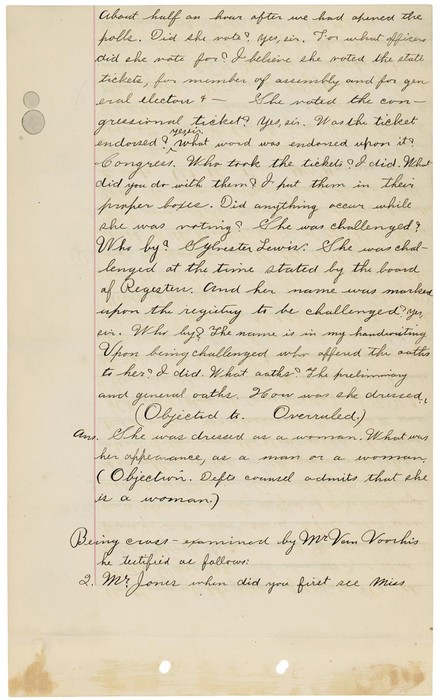 About half an hour after we had opened the
polls. Did she vote? Yes, sir. For what officers
did she vote for? I believe she voted the state
tickets, for member of assembly and for gen
eral electors & — She voted the con-
gressional ticket? Yes, sir. Was the ticket
yes sir
endorsed? What word was endorsed upon it?
Congress. Who took the tickets? I did. What
did you do with them? I put them in their
proper boxes. Did anything occur while
she was voting? She was challenged?
Who by? Sylvester Lewis. She was chal-
lenged at the time stated by the board
of Regesters. And her name was marked
upon the registry to be challenged? Yes,
sir. Who by? The name is in my handwriting
Upon being challenged who offered the oaths
to her? I did. What oaths? The preliminary
and general oaths. How was she dressed,
(Objected to. Overruled.)
Ans. She was dressed as a woman. What was
her appearance, as a man or a woman.
(Objection. Defts counsel admits that she
is a woman.)
Being cross-examined by Mr Van Voorhis
he testified as follows:
2. Mr. Jones when did you first see Miss